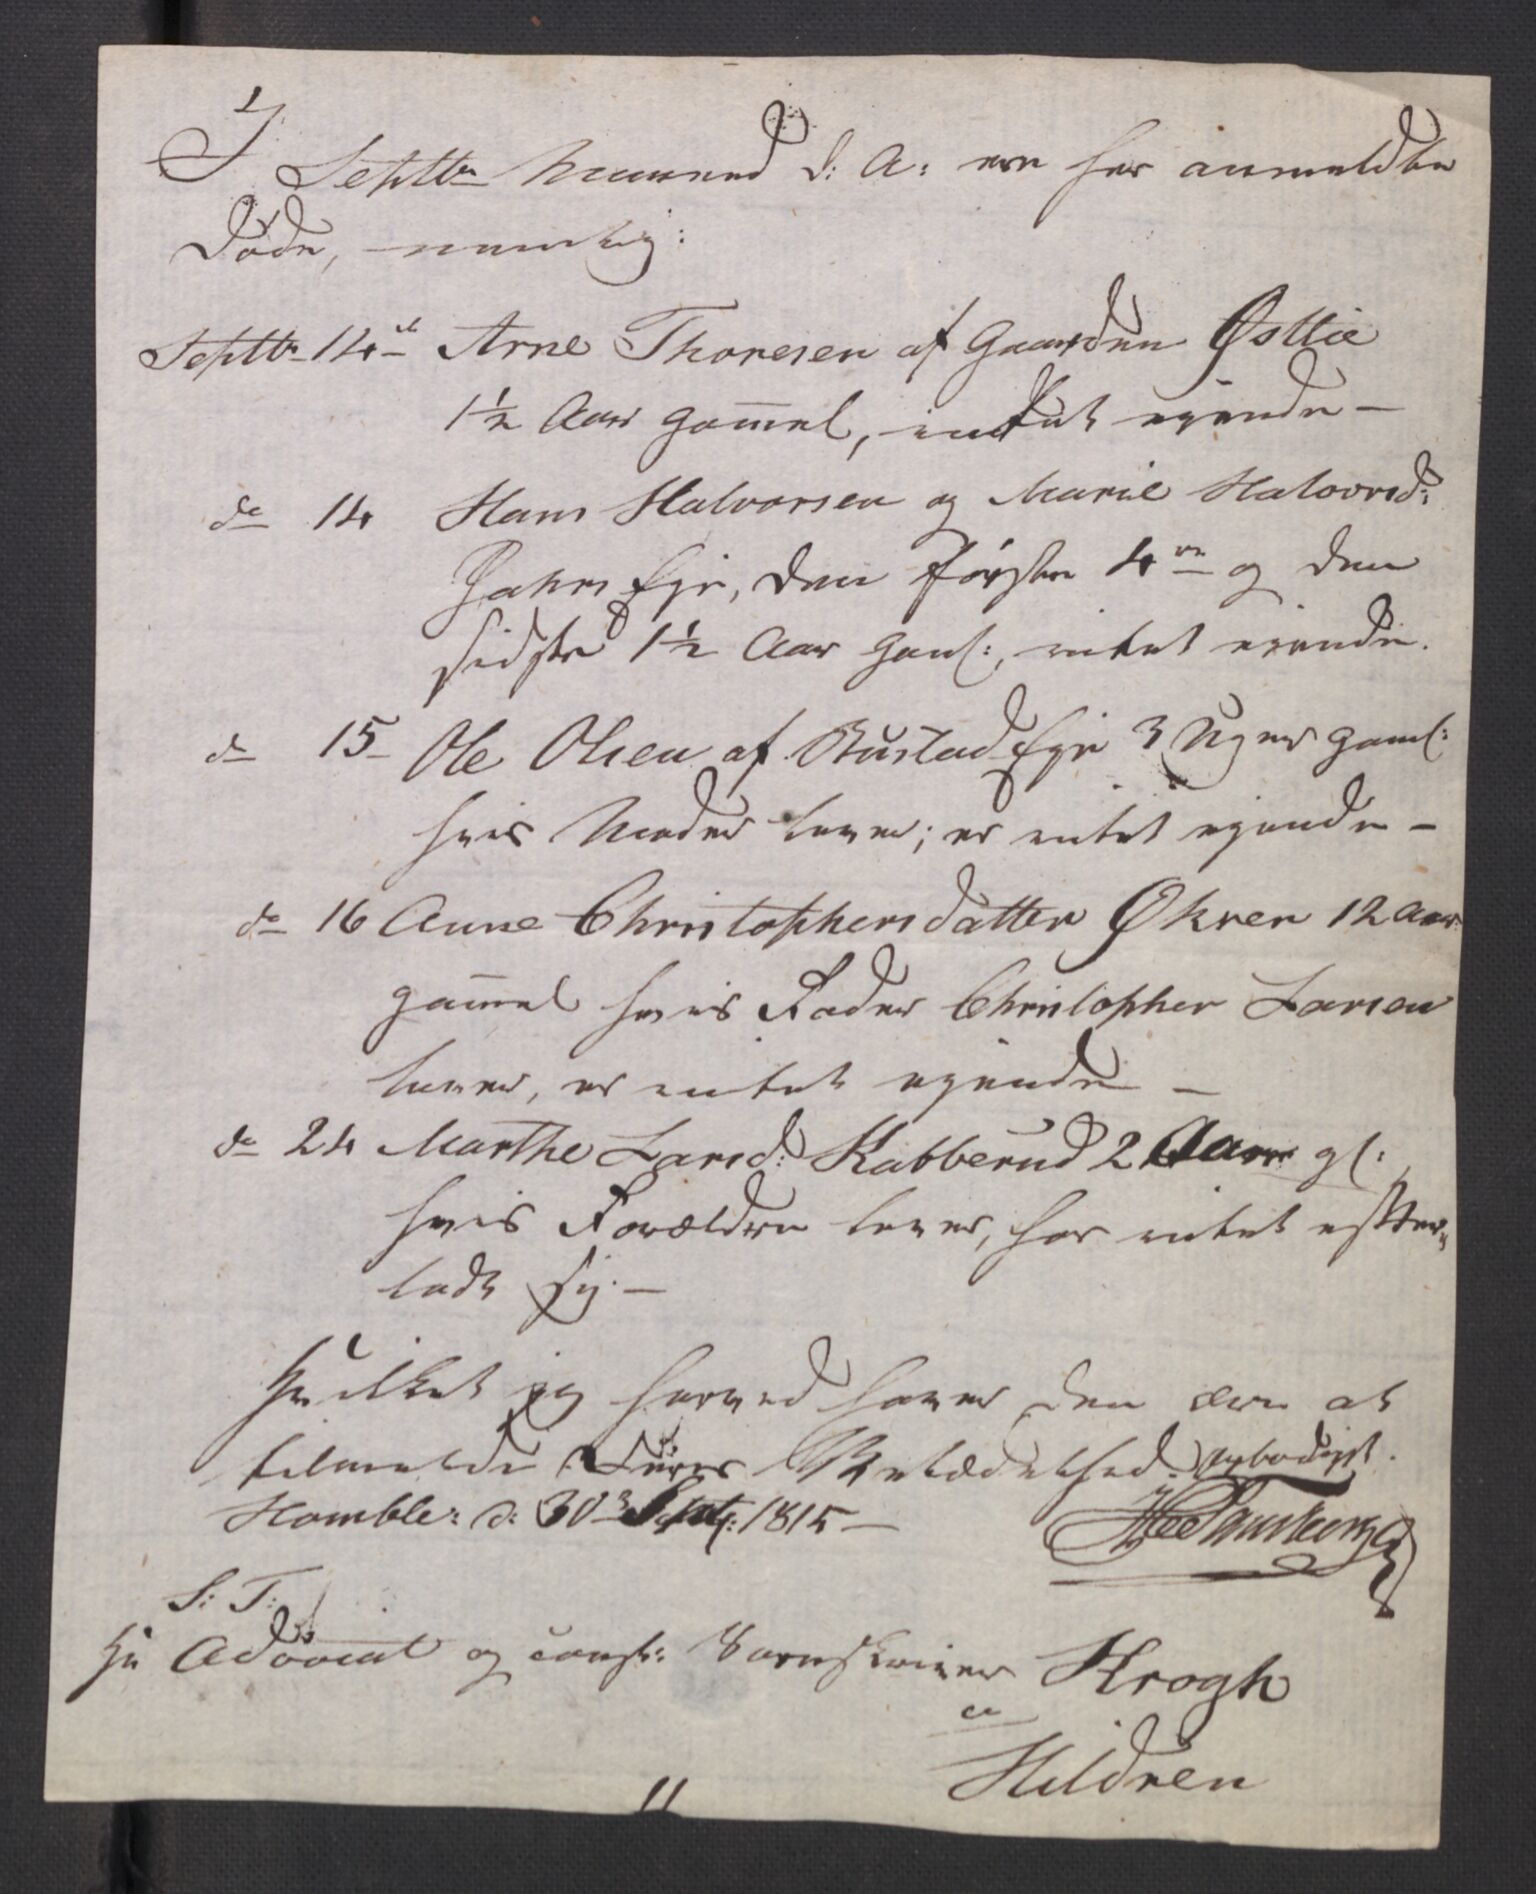 I
Septbr Maaned d: A: ere her anmeldte
Døde, nemlig:
Septbr 14de Arne Thoresen af Gaarden Østlie
1½ Aar gam̄el, intet ejende –
do 14 Hans Halvorsen og Marie Halvorsd:
Eje, den første 4re og den
sidste 1½ Aar gaml:, intet ejende.
do 15 Ole Olsen af Bustad Eje 3 Uger gaml:
hvis Moder lever; er intet ejende –
do 16 Anne Christophersdatter Økren 12 Aar
gam̄el hvis Fader Christopher Larsen
lever, er intet ejende –
do 24 Marthe Larsd: Kabberud 2 Aar gl:
hvis Forældre lever, har intet efter-
ladt sig. –
Hvilket jeg herved haver den ære at
tilmelde Deres Velædelhed. ærbødigst.
d: 30 Sept: 1815 –
S: T:
Hr Advocat og const: Sorenskriver Krogh
a
Hildren